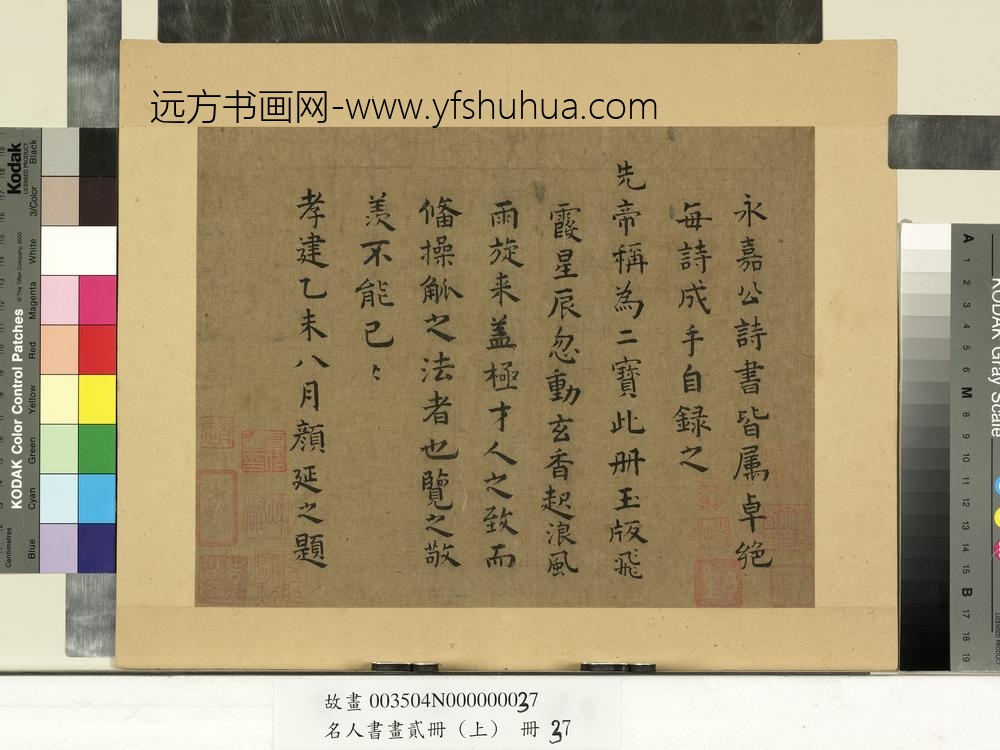 远方书画网-www.yfshuhua.com
永嘉公詩書皆属卓绝
每詩成手自録之
先帝稱為二寶此册玉版飛
霞星辰忽動玄香起浪風
雨旋来盖極才人之致而
俻操觚之法者也覽之敬
羡不能已〻
孝建乙未八月顔延之題
故畫 003504N000000037
名人書畫貳冊（上） 冊 37
Kodak
LICENSED PRODUCT
Black
3/Color
White
Magenta
Red
Yellow
Green
Cyan
Blue
KODAK Color Control Patches
© The Tiffen Company, 2000
Centimetres
KODAK Gray Scale
A 1 2 3 4 5 6 M 8 9 10 11 12 13 14 15 B 17 18 19